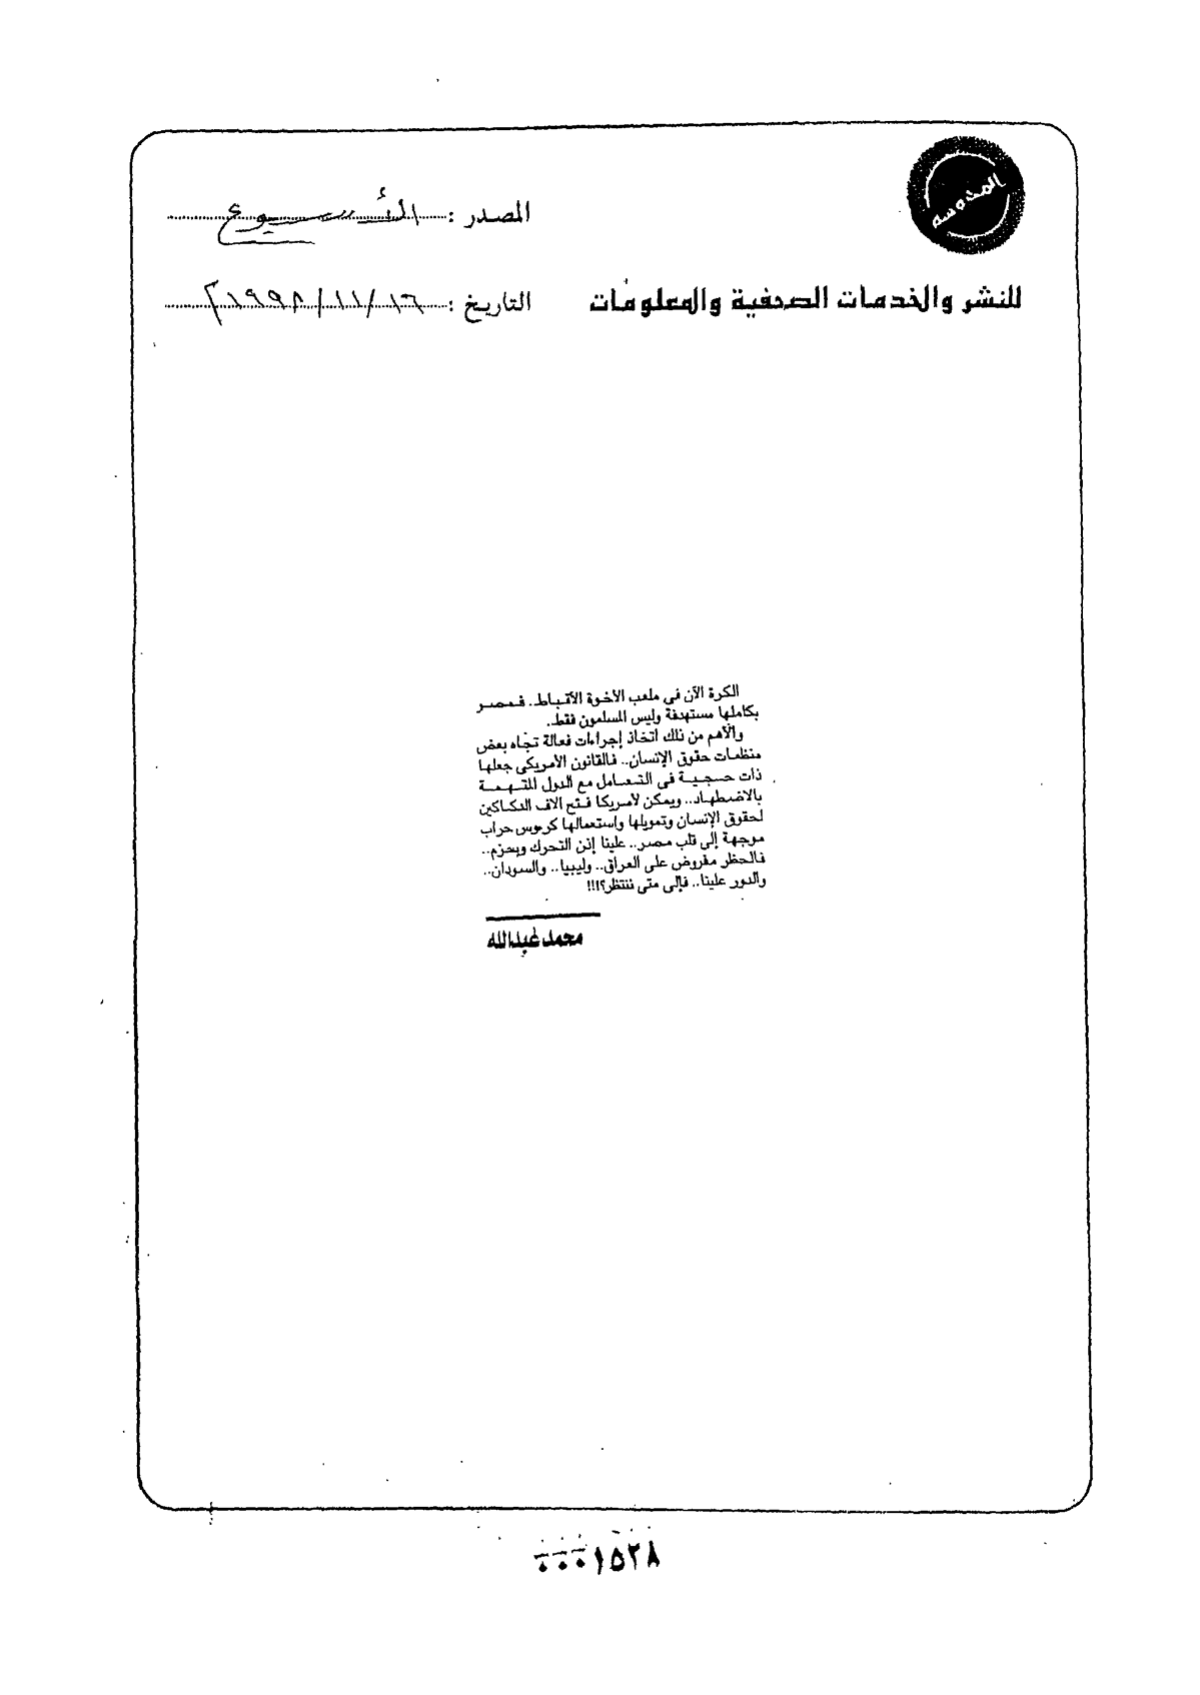 المصدر : الأسبوع
للنشر والخدمات الصحفية والمعلومات
التاريخ : ١٦/١١/١٩٩٨م
الكرة الآن فى ملعب الأخوة الأقباط.. فمصر
بكاملها مستهدفة وليس المسلمون فقط.
والأهم من ذلك اتخاذ إجراءات فعالة تجاه بعض
منظمات حقوق الإنسان.. فالقانون الأمريكى جعلها
ذات حجية فى التعامل مع الدول المتهمة
بالاضطهاد.. ويمكن لأمريكا فتح آلاف الدكاكين
لحقوق الإنسان وتمويلها واستعمالها كرءوس حراب
موجهة إلى قلب مصر.. علينا إذن التحرك وبحزم..
فالحظر مفروض على العراق.. وليبيا.. والسودان..
والدور علينا.. فإلى متى ننتظر؟!!!
محمد عبدالله
٠٠٠١٥٢٨